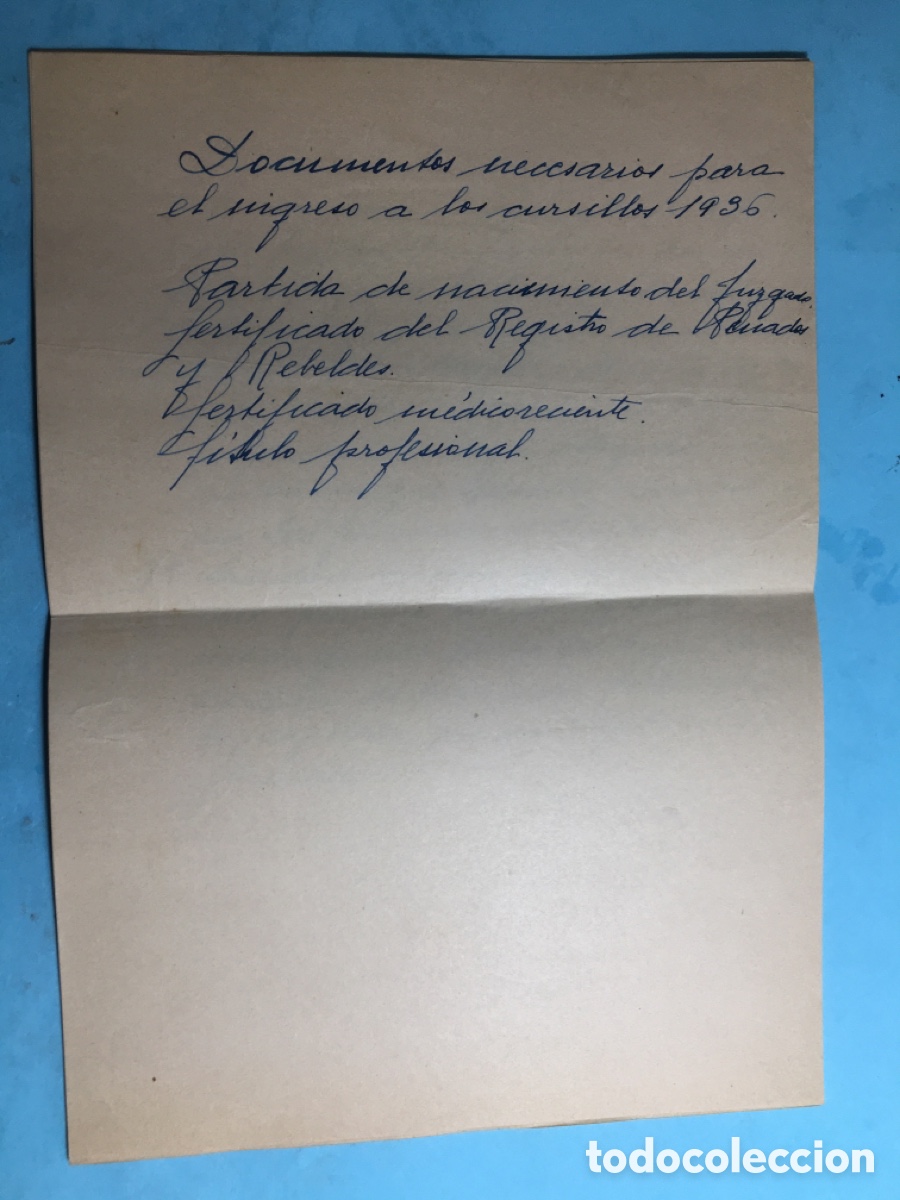 Documentos necesarios para
el ingreso a los cursillos 1936.
Partida de nacimiento del Juzgado.
Certificado del Registro de Penados
y Rebeldes.
Certificado médico reciente.
Título profesional.
todocoleccion